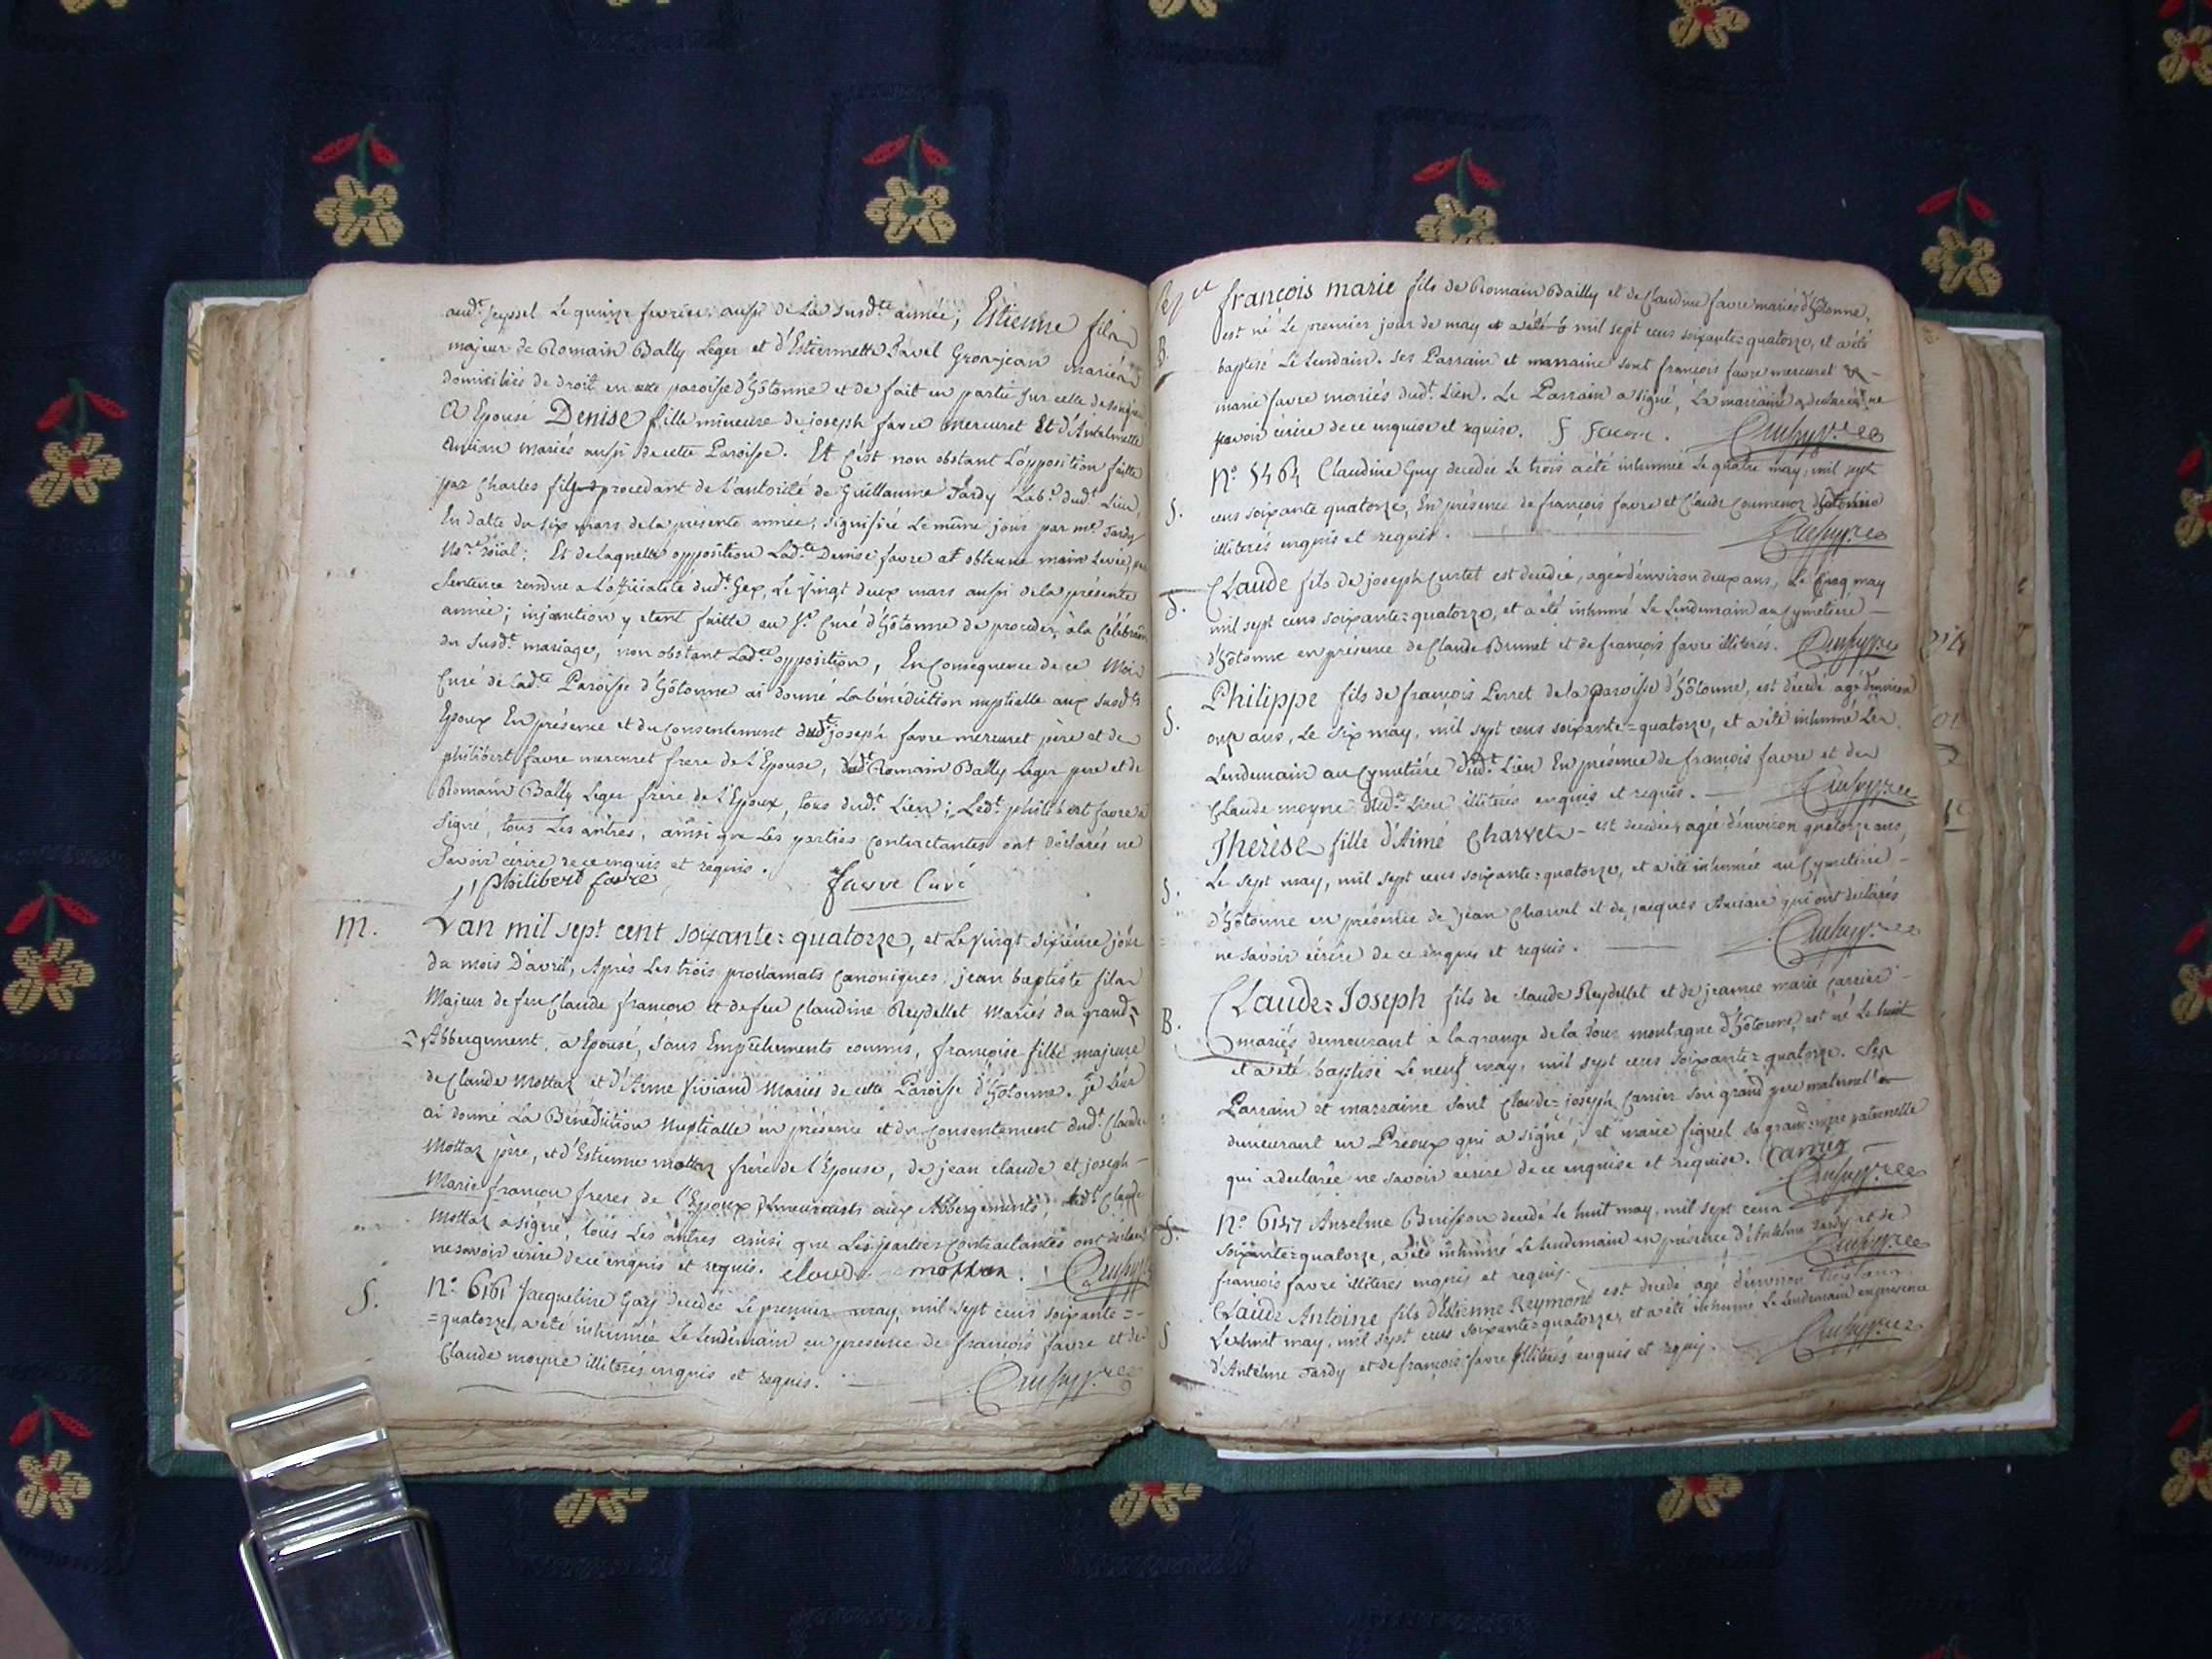 aud.t Seyssel Le quinze fevrier, aussi de La susd.te année; Estienne fils
majeur de Romain Bally Leger et d'Estiennette Savel Gros-jean mariés
domiciliés de droit en paroisse d'hôtonne et de fait en partie sur celle de
A Epousé Denise fille mineure de joseph favre mercuret Et d'Antelmette
Anciàn mariés aussi de cette Paroisse. Et c'est non obstant L'opposition faitte
par Charles fils procedant de l'autorité de Guillaume Tardy Lab.r dud.t Lieu,
En datte du six mars de la présente année, signifiée Le même jour par m.e Tardy
No.re Roïal; Et de laquelle opposition Lad.te Denise favre at obtenue main Levée, par
Sentence rendue a L'officialité dud.t Gex, Le vingt deux mars aussi de la présente
année; injonction y etant faitte au S.r Curé d'hôtonne de proceder à la Célébra.on
du susd.t mariage, non obstant Lad.te opposition, En Consequence de ce Moi
Curé de lad.te Paroisse d'hôtonne ai donné La bénédiction nuptialle aux susd.ts
Epoux En présence et du Consentement dud.t joseph favre mercuret père et de
philibert favre mercuret frere de L'Epouse, dud.t Romain Bally Leger pere et de
Romain Bally Leger frere de L'Epoux, tous dud.t Lieu; Led.t philibert favre a
signé, tous Les autres, ainsi que Les parties contractantes ont déclarés ne
Savoir écrire de ce enquis et réquis.
philibert favre favre Curé
M. L'an mil sept cent soixante=quatorze, et Le vingt sixième jour
du mois D'avril, Après Les trois proclamats Canoniques, jean baptiste fils
Majeur de feu Claude françon et de feu Claudine Reydellet Mariés du grand
Abbergement, a Epousé, sans Empêchements connus, françoise fille majeure
de Claude Mottaz et d'Anne Viviand Mariés de cette Paroisse d'hôtonne. je Leur
ai donné La Bénédiction Nuptialle en présence et du Consentement dud.t Claude
Mottaz père, et d'Estienne mottaz frère de l'Epouse, de jean claude et joseph-
Marie françon freres de l'Epoux, demeurants aux Abbergements, Led.t Claude
Mottaz a signé, tous Les autres ainsi que Les parties contractantes ont déclaré
ne savoir écrire de ce enquis et requis. claude mottaz.
S. N.o 6161 Jacqueline Gay decedée Le premier may, mil sept cens soixante=
=quatorze, a été inhumée Le lendemain en presence de françois favre et de
Claude moyne illiterés enquis et requis.
B. françois marie fils de Romain Bailly et de Claudine favre mariés d'hôtonne,
est né Le premier jour de may mil sept cens soixante=quatorze, et a été
baptisé Le lendain. Ses Parrain et marraine sont françois favre mercuret et
marie favre mariés dud.t Lieu. Le Parrain a signé, La marraine a declaré ne
savoir écrire de ce enquise et requise. F Favre.
S. N.o 5464 Claudine Guy decedée Le trois a été inhumée Le quatre may, mil sept
cens soixante quatorze, En présence de françois favre et Claude d'hôtonne
illiterés enquis et requis.
S. Claude fils de joseph Curtet est decedé, agé d'environ deux ans, Le cinq may
mil sept cens soixante=quatorze, et a été inhumé Le Lendemain au Cymetière
d'hôtonne en présence de Claude Brunet et de françois favre illiterés.
S. Philippe fils de françois Perret de la Paroisse d'hôtonne, est decedé agé d'environ
onze ans, Le six may, mil sept cens soixante=quatorze, et a été inhumé Le
Lendemain au Cymetière dud.t Lieu En présence de françois favre et de
Claude moyne dud.t Lieu illiterés enquis et requis.
S. Therèse fille d'Aimé Charvet est decedée, agée d'environ quatorze ans,
Le sept may, mil sept cens soixante=quatorze, et a été inhumée au Cymetière
d'hôtonne en présence de jean Charvet et de jacques Ancian qui ont declarés
ne savoir écrire de ce enquis et requis.
B. Claude=Joseph fils de claude Reydellet et de jeanne marie Carrier
mariés demeurant à la grange de la Jour montagne d'hôtonne, est né Le huit
et a été baptisé Le neuf may, mil sept cens soixante=quatorze. Ses
Parrain et marraine sont Claude=joseph Carrier son grand pere maternel
demeurant en Préoux qui a signé, et marie figuet sa grand-mere paternelle
qui a declarée ne savoir écrire de ce enquise et requise. Carrier
S. N.o 6147 Anselme Buisson decedé Le huit may, mil sept cens
soixante=quatorze, a été inhumé Le lendemain en présence d'Antelme Tardy et de
françois favre illiteres enquis et requis.
S Claude Antoine fils d'Estienne Reymond est decedé agé d'environ trois ans
Le huit may, mil sept cens soixante=quatorze, et a été inhumé Le lendemain en presence
d'Antelme Tardy et de françois favre illiterés enquis et requis.